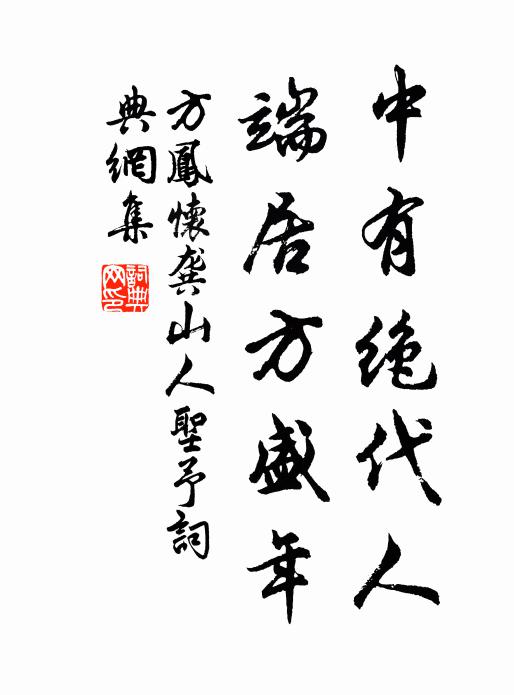 中有绝代人
端居方盛年
方鳳懷龔山人聖予詞
典網集
詞典網印